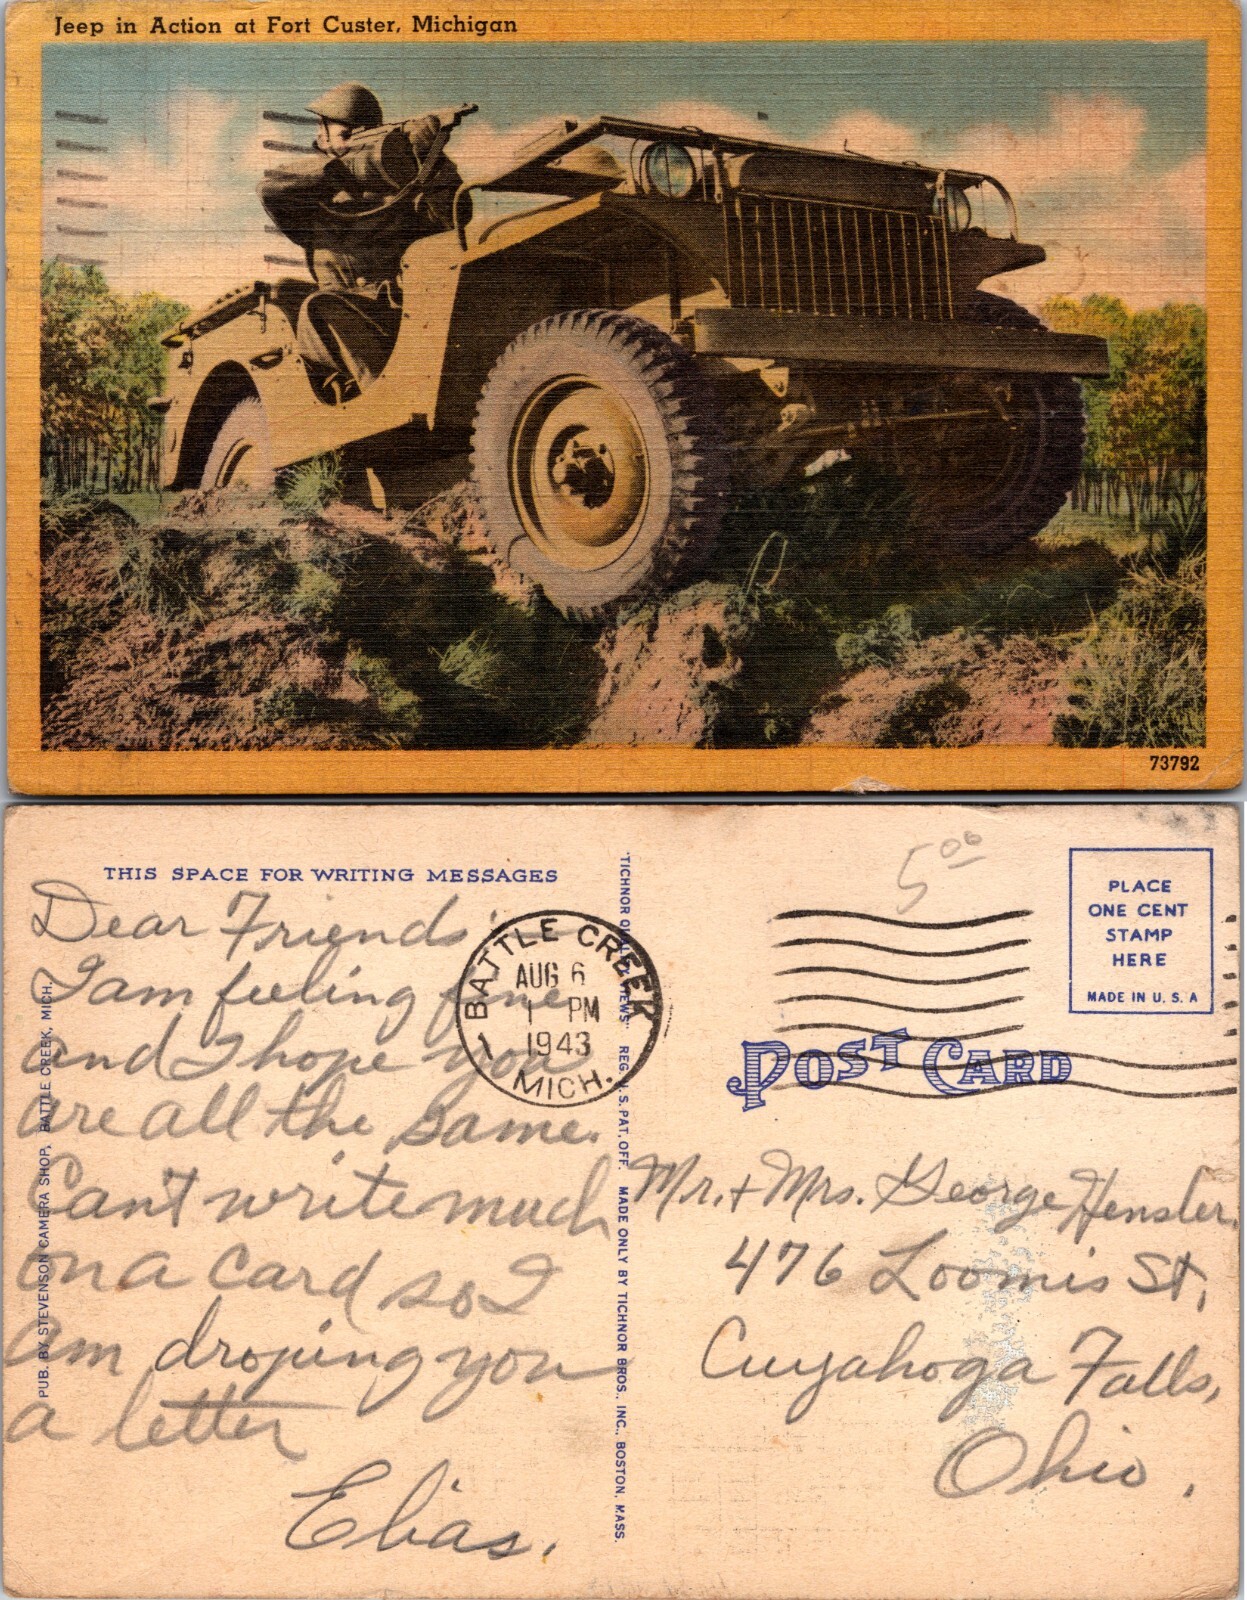 Jeep in Action at Fort Custer, Michigan
73792
THIS SPACE FOR WRITING MESSAGES
Dear Friends
I am feeling fine
and I hope you
are all the same.
Can't write much
on a card so I
am droping you
a letter
Elias.
PUB. BY STEVENSON CAMERA SHOP, BATTLE CREEK, MICH.
BATTLE CREEK
AUG 6
1 PM
1943
MICH.
"TICHNOR QUALITY VIEWS" REG. U. S. PAT. OFF. MADE ONLY BY TICHNOR BROS., INC., BOSTON, MASS.
5 00
PLACE
ONE CENT
STAMP
HERE
MADE IN U. S. A
POST CARD
Mr. + Mrs. George Hensler.
476 Loomis St,
Cuyahoga Falls,
Ohio.